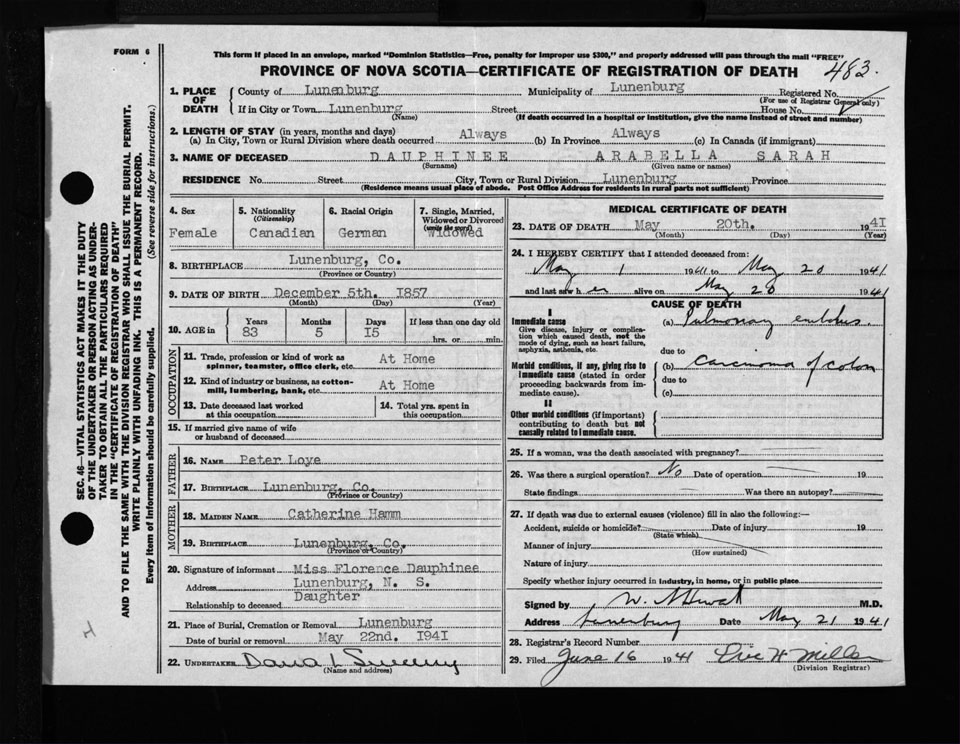 FORM 6
This form if placed in an envelope, marked "Dominion Statistics—Free, penalty for improper use $300," and properly addressed will pass through the mail "FREE"
PROVINCE OF NOVA SCOTIA—CERTIFICATE OF REGISTRATION OF DEATH
483.
1. PLACE OF DEATH
County of Lunenburg Municipality of Lunenburg Registered No.
(For use of Registrar General only)
If in City or Town Lunenburg Street House No.
(Name) (If death occurred in a hospital or institution, give the name instead of street and number)
2. LENGTH OF STAY (in years, months and days)
(a) In City, Town or Rural Division where death occurred Always (b) In Province Always (c) In Canada (if immigrant)
3. NAME OF DECEASED DAUPHINEE ARABELLA SARAH
(Surname) (Given name or names)
RESIDENCE No. Street City, Town or Rural Division Lunenburg Province
(Residence means usual place of abode. Post Office Address for residents in rural parts not sufficient)
4. Sex
Female
5. Nationality
(Citizenship)
Canadian
6. Racial Origin
German
7. Single, Married, Widowed or Divorced
(write the word)
Widowed
8. BIRTHPLACE Lunenburg, Co.
(Province or Country)
9. DATE OF BIRTH December 5th. 1857
(Month) (Day) (Year)
10. AGE in Years Months Days If less than one day old
83 5 15 hrs. or min.
OCCUPATION
11. Trade, profession or kind of work as spinner, teamster, office clerk, etc. At Home
12. Kind of industry or business, as cotton-mill, lumbering, bank, etc. At Home
13. Date deceased last worked at this occupation
14. Total yrs. spent in this occupation
15. If married give name of wife or husband of deceased
FATHER
16. NAME Peter Loye
17. BIRTHPLACE Lunenburg, Co.
(Province or Country)
MOTHER
18. MAIDEN NAME Catherine Hamm
19. BIRTHPLACE Lunenburg, Co.
(Province or Country)
20. Signature of informant Miss Florence Dauphinee
Address Lunenburg, N. S.
Relationship to deceased Daughter
21. Place of Burial, Cremation or Removal Lunenburg
Date of burial or removal May 22nd. 1941
22. UNDERTAKER
(Name and address)
MEDICAL CERTIFICATE OF DEATH
23. DATE OF DEATH May 20th. 1941
(Month) (Day) (Year)
24. I HEREBY CERTIFY that I attended deceased from:
May 1 1941 to May 20 1941
and last saw her alive on May 20 1941
CAUSE OF DEATH
I
Immediate cause
Give disease, injury or complication which caused death, not the mode of dying, such as heart failure, asphyxia, asthenia, etc.
(a) Pulmonary embolus.
due to
Morbid conditions, if any, giving rise to immediate cause (stated in order proceeding backwards from immediate cause).
(b) Carcinoma of colon
due to
(c)
II
Other morbid conditions (if important) contributing to death but not causally related to immediate cause.
25. If a woman, was the death associated with pregnancy?
26. Was there a surgical operation? No Date of operation 19
State findings Was there an autopsy?
27. If death was due to external causes (violence) fill in also the following:—
Accident, suicide or homicide? Date of injury 19
(State which)
Manner of injury
(How sustained)
Nature of injury
Specify whether injury occurred in industry, in home, or in public place
Signed by M.D.
Address Lunenburg Date May 21 1941
28. Registrar's Record Number
29. Filed June 16 1941
(Division Registrar)
SEC. 46—VITAL STATISTICS ACT MAKES IT THE DUTY
OF THE UNDERTAKER OR PERSON ACTING AS UNDER-
TAKER TO OBTAIN ALL THE PARTICULARS REQUIRED
IN THE "CERTIFICATE OF REGISTRATION OF DEATH"
AND TO FILE THE SAME WITH THE DIVISION REGISTRAR WHO SHALL ISSUE THE BURIAL PERMIT.
WRITE PLAINLY WITH UNFADING INK. THIS IS A PERMANENT RECORD.
Every item of information should be carefully supplied. (See reverse side for instructions.)